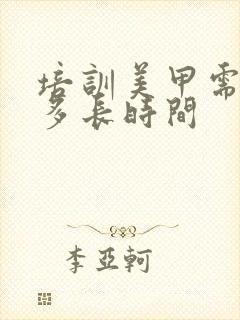 培訓美甲需
多長時間
李亞軻